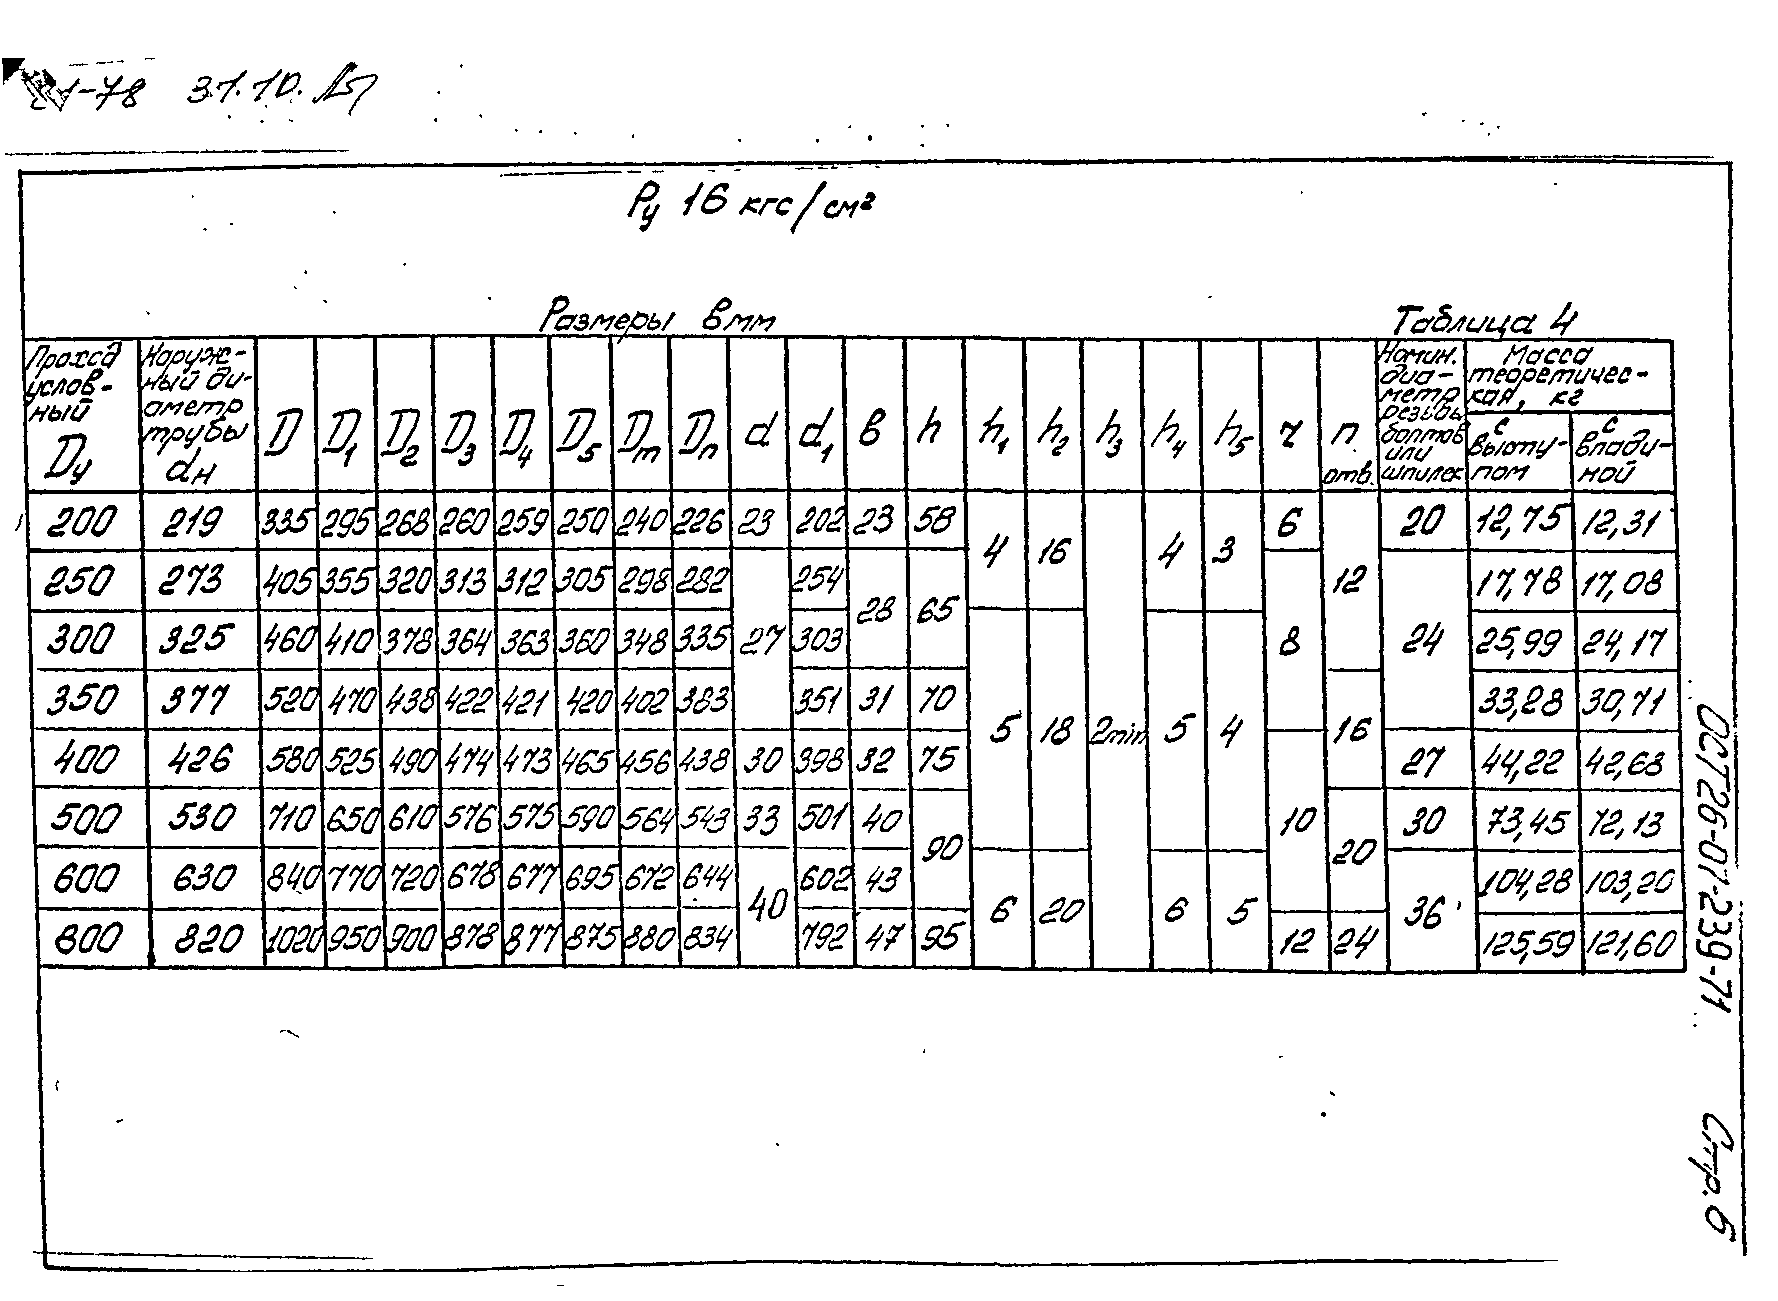 1-78 31.10.
Ру 16 кгс/см²
Размеры в мм
Таблица 4
Проход условный Dу | Наружный диаметр трубы dн | D | D1 | D2 | D3 | D4 | D5 | Dm | Dп | d | d1 | в | h | h1 | h2 | h3 | h4 | h5 | r | n отв. | Номин. диаметр резьбы болтов или шпилек | Масса теоретическая, кг
с выступом | с впадиной
200 219 335 295 268 260 259 250 240 226 23 202 23 58 4 16 2min 4 3 6 12 20 12,75 12,31
250 273 405 355 320 313 312 305 298 282 27 254 28 65 8 24 17,78 17,08
300 325 460 410 378 364 363 360 348 335 303 5 18 5 4 25,99 24,17
350 377 520 470 438 422 421 420 402 383 351 31 70 16 33,28 30,71
400 426 580 525 490 474 473 465 456 438 30 398 32 75 10 27 44,22 42,68
500 530 710 650 610 576 575 590 564 543 33 501 40 90 20 30 73,45 72,13
600 630 840 770 720 678 677 695 672 644 40 602 43 6 20 6 5 36 104,28 103,20
800 820 1020 950 900 878 877 875 880 834 792 47 95 12 24 125,59 121,60
ОСТ 26-07-239-71 Стр. 6